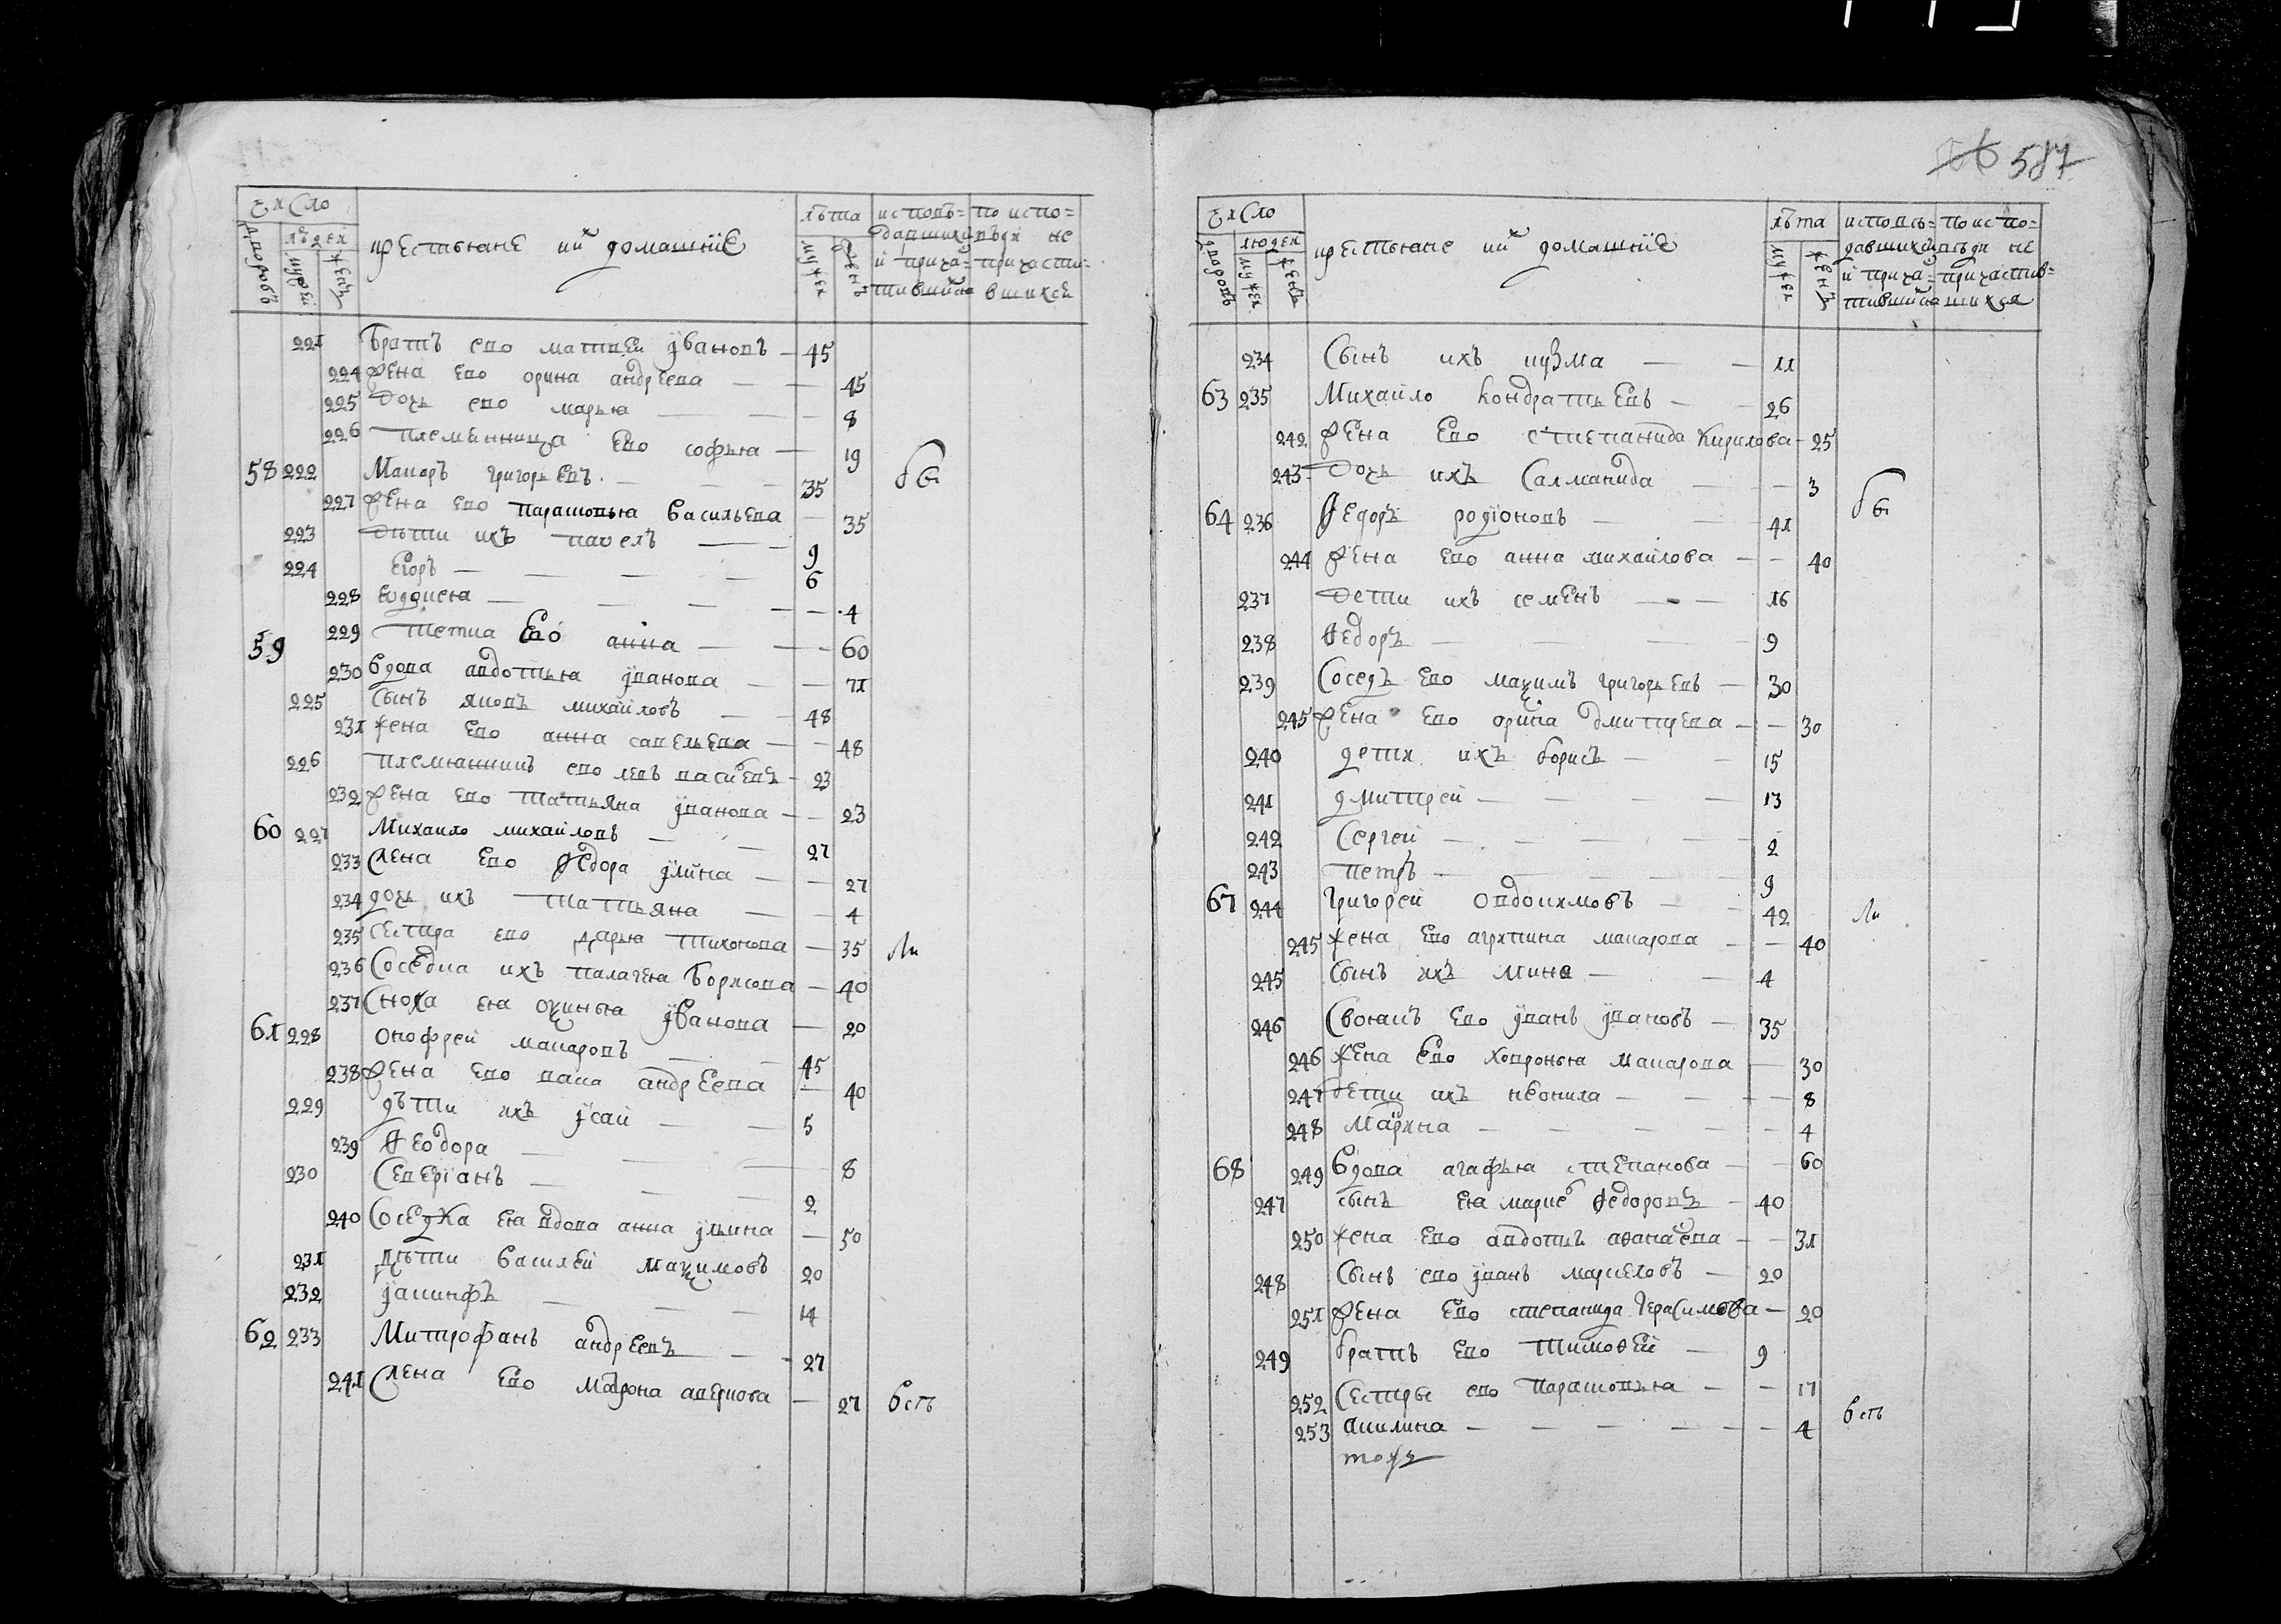 число
дворовъ
людей
мужеск
женъ
крестьяне и их домашніе
лѣта
мужеск
женъ
исповѣ=
давшихся
и прича=
стившихся
по испо=
вѣди не
причасти=
вшихся
221 братъ ево матвей ѵвановъ — 45
224 жена ево орина андреева — — 45
225 дочь ево марья — — 8
226 племянница ево софья — 19
58 222 Макаръ григорьевъ — — 35 бы
227 жена ево парасковья васильева — 35
223 дѣти ихъ павелъ — — 9
224 Егоръ — — — — 6
228 евдокея — — — — 4
59 229 тетка ево анна — — 60
230 вдова авдотья ѵванова — — 71
225 сынъ яковъ михайловъ — — 48
231 жена ево анна савельева — — 48
226 племянникъ ево левъ василевъ — 23
232 жена ево татьяна ѵванова — — 23
60 227 Михаило михайловъ — — 27
233 жена ево Ѳедора ѵлина — — 27
234 дочь ихъ татьяна — — 4
235 сестра ево дарья тихонова — 35 ли
236 соседка ихъ палагея борисова — 40
237 сноха ея оксинья ѵванова — 20
61 228 онофрей макаровъ — — 45
238 жена ево васа андреева — 40
229 дѣти ихъ ѵсай — — 5
239 Ѳеодора — — — 8
230 Северіанъ — — — 2
240 соседка ея вдова анна ѵльина — 50
231 дѣти василей максимовъ 20
232 ѵакинфъ — — — 14
62 233 Митрофанъ андреевъ — — 27
241 жена ево матрона аверкова — 27 бсть
587
число
дворовъ
людей
мужеск
женъ
крестьяне и их домашніе
лѣта
мужеск
женъ
исповѣ=
давшихся
и прича=
стившихся
по испо=
вѣди не
причастив=
шихся
234 Сынъ ихъ кузма — — 11
63 235 Михайло кондратьевъ — — 26
242 жена ево степанида кирилова — 25
243 дочь ихъ Салманида — — 3
64 236 Ѳедоръ родіоновъ — — 41 бы
244 жена ево анна михайлова — — 40
237 дети ихъ семенъ — — 16
238 Ѳедоръ — — — 9
239 Соседъ ево максимъ григорьевъ — 30
245 жена ево орина дмитрева — — 30
240 дети ихъ борисъ — — 15
241 дмитрей — — — — 13
242 Сергей — — — — 2
243 петръ — — — — 9
67 244 григорей овдокимовъ — — 42 ли
245 жена ево агрипина макарова — — 40
245 сынъ ихъ мина — — 4
246 Своякъ ево ѵванъ ѵвановъ — 35
246 жена ево ховронья макарова — 30
247 дети ихъ неонила — — — 8
248 Марина — — — — — 4
68 249 вдова агафья степанова — — 60
247 сынъ ея марке Ѳедоровъ — 40
250 жена ево авдотья аѳанасева — — 31
248 Сынъ ево ѵванъ маркеловъ — 20
251 жена ево степанида герасимова — 20
249 братъ ево тимоѳей — 9
252 Сестры ево парасковья — — 17
253 акилина — — — — — 4 бсть
тожъ